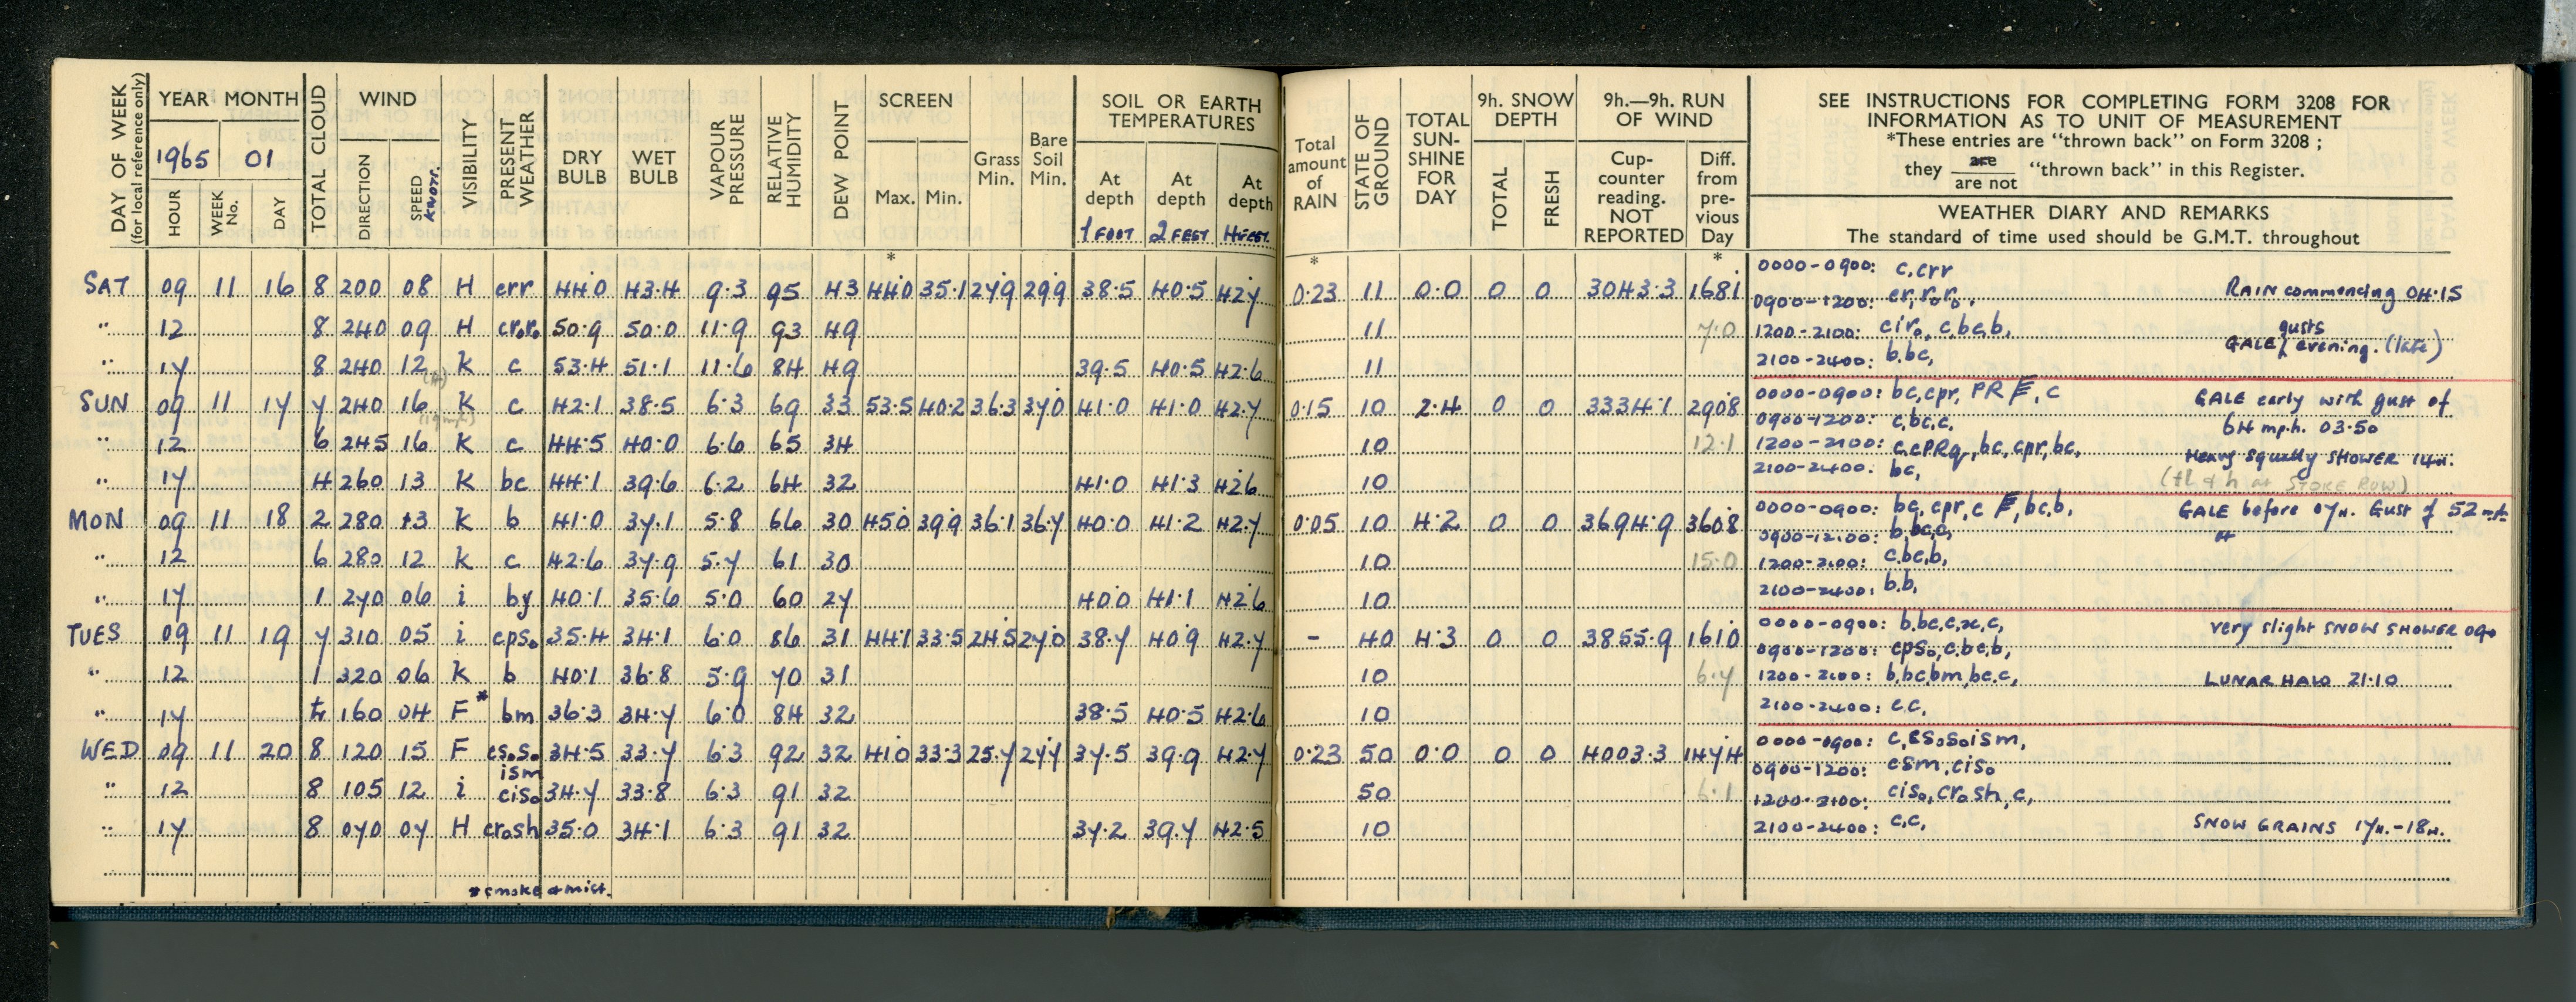 DAY OF WEEK (for local reference only)
YEAR MONTH
1965 01
HOUR WEEK No. DAY
TOTAL CLOUD
WIND
DIRECTION SPEED KNOTS.
VISIBILITY
PRESENT WEATHER
DRY BULB
WET BULB
VAPOUR PRESSURE
RELATIVE HUMIDITY
DEW POINT
SCREEN
Max. Min.
Grass Min.
Bare Soil Min.
SOIL OR EARTH TEMPERATURES
At depth 1 FOOT
At depth 2 FEET
At depth 4 FEET
Total amount of RAIN
STATE OF GROUND
TOTAL SUN-SHINE FOR DAY
9h. SNOW DEPTH
TOTAL FRESH
9h.—9h. RUN OF WIND
Cup-counter reading. NOT REPORTED
Diff. from pre-vious Day
SEE INSTRUCTIONS FOR COMPLETING FORM 3208 FOR
INFORMATION AS TO UNIT OF MEASUREMENT
*These entries are "thrown back" on Form 3208 ;
they are / are not "thrown back" in this Register.
WEATHER DIARY AND REMARKS
The standard of time used should be G.M.T. throughout
* * *
SAT 09 11 16 8 200 08 H crr 44.0 43.4 9.3 95 43 44.0 35.1 27.9 29.9 38.5 40.5 42.7 0.23 11 0.0 0 0 3043.3 168.1
0000-0900: c,crr
0900-1200: cr,r₀r₀, RAIN commencing 04.15
" 12 8 240 09 H cr₀r₀ 50.9 50.0 11.9 93 49 11 7.0
1200-2100: cir₀, c,bc,b, gusts
" 17 8 240 12 K c 53.4 51.1 11.6 84 49 39.5 40.5 42.6 11
2100-2400: b,bc, GALE evening. (late)
SUN 09 11 17 7 240 16 K c 42.1 38.5 6.3 69 33 53.5 40.2 36.3 37.0 41.0 41.0 42.7 0.15 10 2.4 0 0 3334.1 290.8
0000-0900: bc,cpr, PR F, c GALE early with gust of
0900-1200: c,bc,c. 64 mph. 03.50
(19 mph)
" 12 6 245 16 K c 44.5 40.0 6.6 65 34 10 12.1
1200-2100: c,cPRq, bc, cpr, bc. Heavy squally SHOWER 14h.
" 17 4 260 13 K bc 44.1 39.6 6.2 64 32 41.0 41.3 42.6 10
2100-2400. bc, (tl & h at STOKE ROW)
MON 09 11 18 2 280 13 K b 41.0 37.1 5.8 66 30 45.0 39.9 36.1 36.7 40.0 41.2 42.7 0.05 10 4.2 0 0 3694.9 360.8
0000-0900: bc, cpr, c F, bc,b, GALE before 07h. Gust of 52 mph
0900-1200: b,bc,c,
" 12 6 280 12 K c 42.6 37.9 5.7 61 30 10 15.0
1200-2100: c.bc,b,
" 17 1 270 06 i by 40.1 35.6 5.0 60 27 40.0 41.1 42.6 10
2100-2400: b.b,
TUES 09 11 19 7 310 05 i cps₀ 35.4 34.1 6.0 86 31 44.1 33.5 24.5 27.0 38.7 40.9 42.7 - 40 4.3 0 0 3855.9 161.0
0000-0900: b.bc,c,x,c, very slight SNOW SHOWER 090
0900-1200: cps₀, c.bc,b,
" 12 1 320 06 K b 40.1 36.8 5.9 70 31 10 6.7
1200-2100: b,bc,bm,bc,c, LUNAR HALO 21.10
" 17 160 04 F* bm 36.3 34.7 6.0 84 32 38.5 40.5 42.6 10
2100-2400: c.c.
WED 09 11 20 8 120 15 F cs₀s₀ ism 34.5 33.7 6.3 92 32 41.0 33.3 25.7 27.7 37.5 39.9 42.7 0.23 50 0.0 0 0 4003.3 147.4
0000-0900: c,cs₀s₀ism,
0900-1200: csm, cis₀
" 12 8 105 12 i cis₀ 34.7 33.8 6.3 91 32 50 6.1
1200-2100: cis₀, cr₀sh, c,
" 17 8 070 07 H cr₀sh 35.0 34.1 6.3 91 32 37.2 39.7 42.5 10
2100-2400: c,c, SNOW GRAINS 17h.-18h.
* smoke & mist.